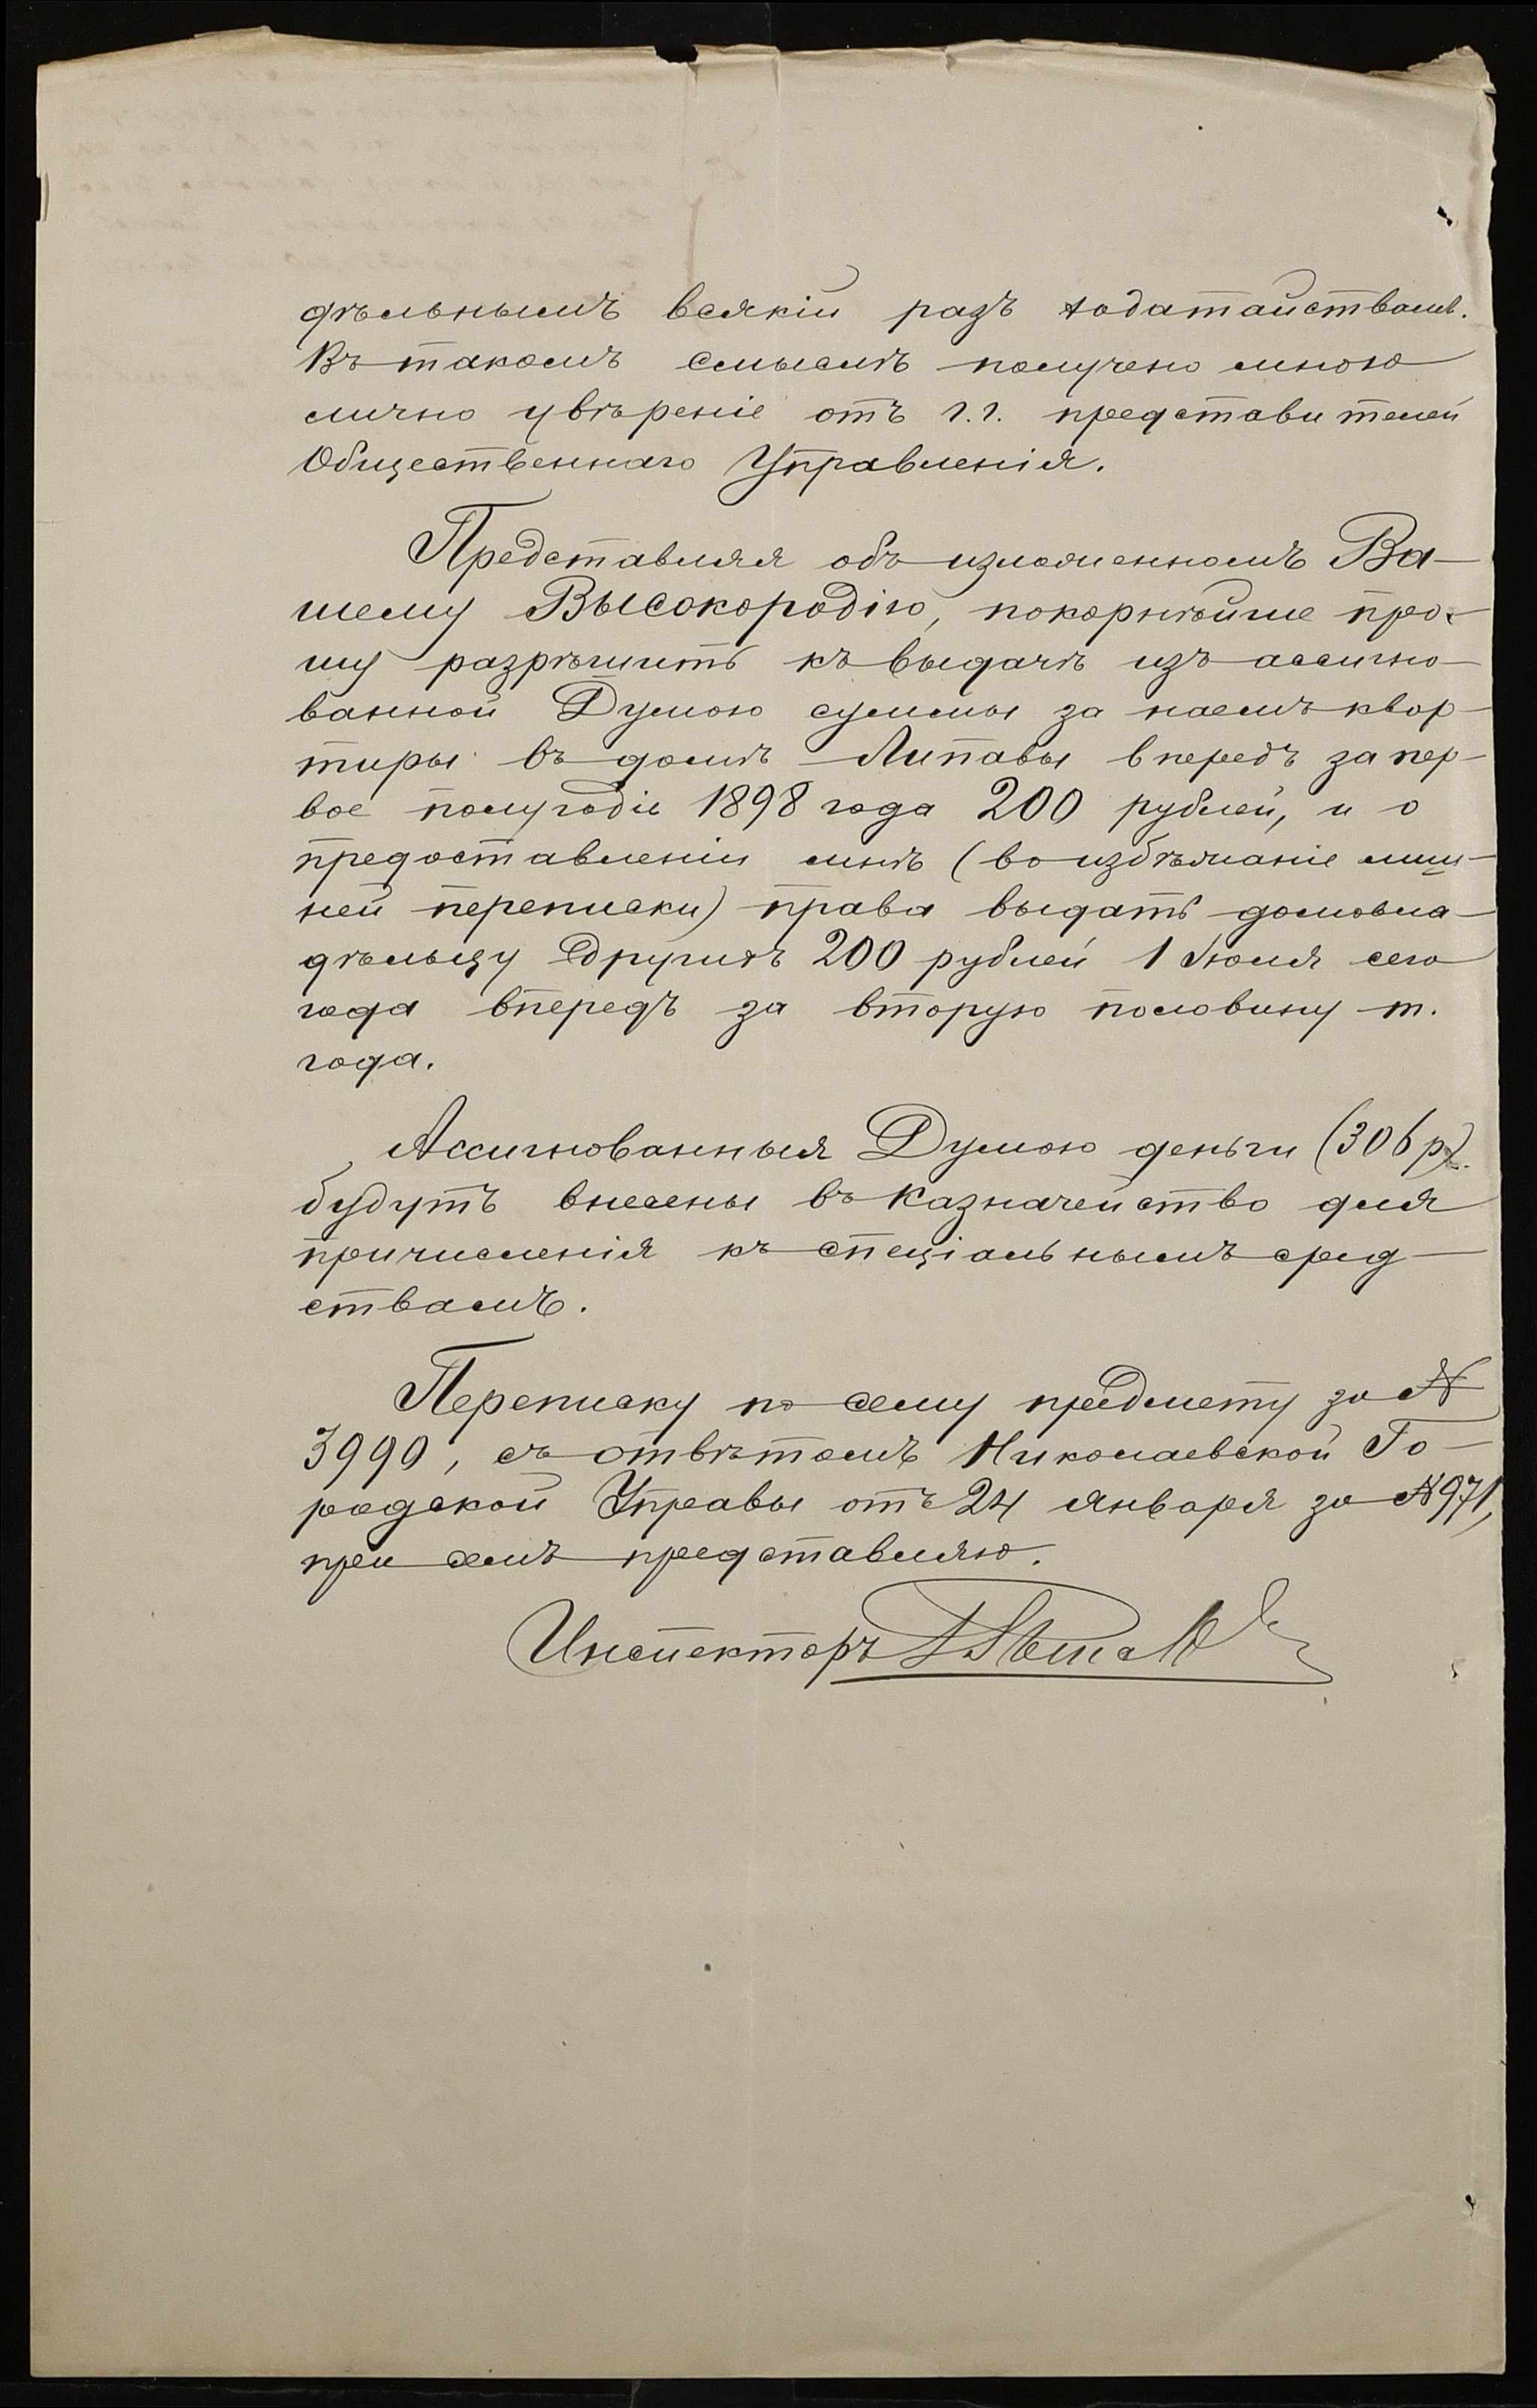 дѣльнымъ всякій разъ ходатайствамъ.
Въ такомъ смыслѣ получено мною
лично увѣреніе отъ г.г. представителей
Общественнаго Управленія.
Представляя объ изложенномъ Ва-
шему Высокородію, покорнѣйше про-
шу разрѣшить къ выдачѣ изъ ассигно-
ванной Думою суммы за наемъ квар-
тиры въ домѣ Липавы впередъ за пер-
вое полугодіе 1898 года 200 рублей, и о
предоставленіи мнѣ (во избѣжаніе лиш-
ней переписки) права выдать домовла-
дѣльцу другихъ 200 рублей 1 Іюля сего
года впередъ за вторую половину т.
года.
Ассигнованныя Думою деньги (306 р.)
будутъ внесены въ Казначейство для
причисленія къ спеціальнымъ сред-
ствамъ.
Переписку по сему предмету за №
3990, съ отвѣтомъ Николаевской Го-
родской Управы отъ 24 января за № 971,
при семъ представляю.
Инспекторъ